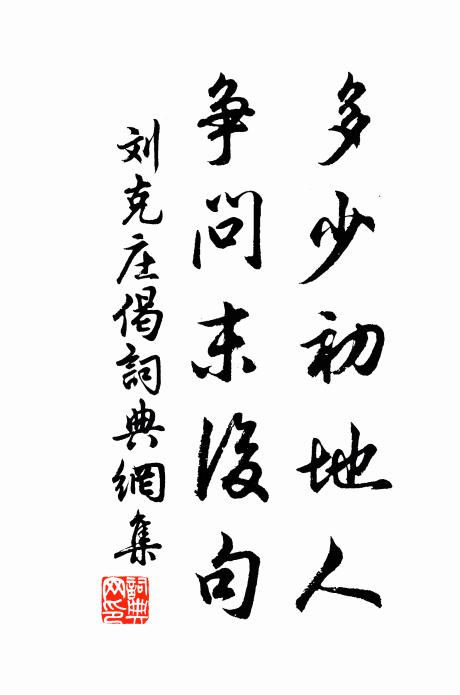 多少初地人
争問末後句
刘克庄偈詞典網集
詞典网印